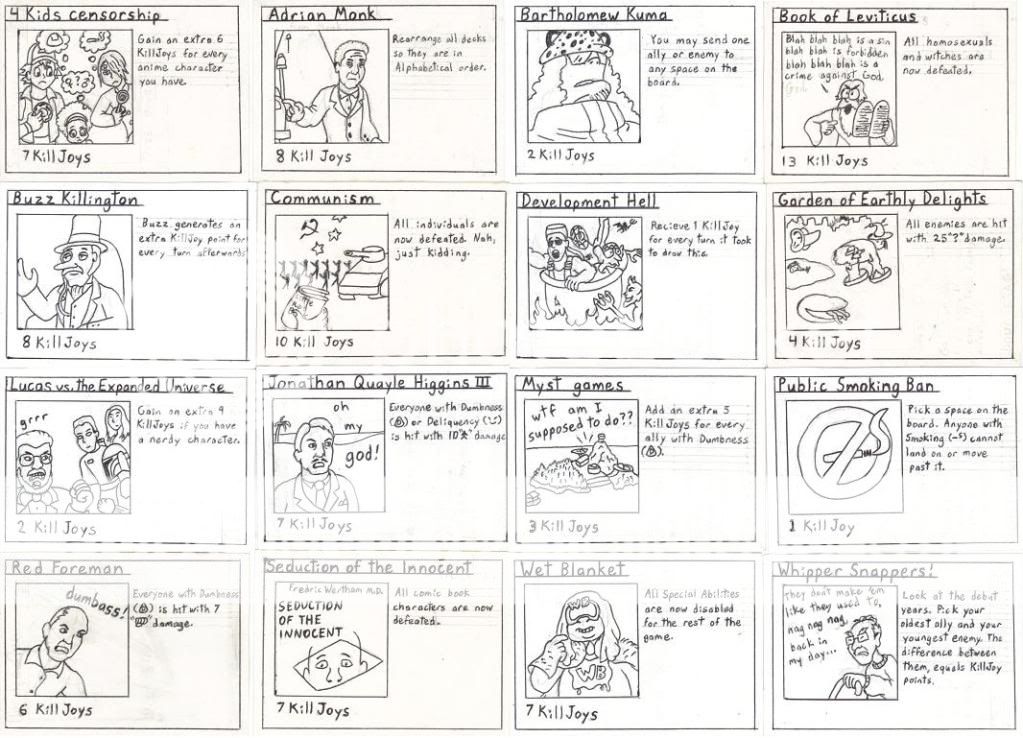 4 Kids censorship
Gain an extra 6
KillJoys for every
anime character
you have.
7 KillJoys
Adrian Monk
Rearrange all decks
so they are in
Alphabetical order.
8 KillJoys
Bartholomew Kuma
You may send one
ally or enemy to
any space on the
board.
2 KillJoys
Book of Leviticus
Blah blah blah is a sin
blah blah is forbidden
blah blah blah is a
crime against God,
God.
All homosexuals
and witches are
now defeated.
13 KillJoys
Buzz Killington
Buzz generates an
extra KillJoy point for
every turn afterwards
8 KillJoys
Communism
All individuals are
now defeated. Nah,
just kidding.
10 KillJoys
Development Hell
Recieve 1 KillJoy
for every turn it took
to draw this.
Garden of Earthly Delights
All enemies are hit
with 25"?" damage.
4 KillJoys
Lucas vs. the Expanded Universe
grrr
Gain an extra 9
KillJoys if you have
a nerdy character.
2 KillJoys
Jonathan Quayle Higgins III
oh
my
god!
Everyone with Dumbness
( ) or Deliquency ( )
is hit with 10" " damage
7 KillJoys
Myst games
wtf am I
supposed to do??
Add an extra 5
KillJoys for every
ally with Dumbness
( ).
3 KillJoys
Public Smoking Ban
Pick a space on the
board. Anyone with
Smoking ( ) cannot
land on or move
past it.
1 KillJoy
Red Foreman
dumbass!
Everyone with Dumbness
( ) is hit with 7
" " damage.
6 KillJoys
Seduction of the Innocent
Fredric Wertham M.D.
SEDUCTION
OF THE
INNOCENT
All comic book
characters are now
defeated.
7 KillJoys
Wet Blanket
WB
All Special Abilities
are now disabled
for the rest of the
game.
7 KillJoys
Whipper Snappers!
They don't make 'em
like they used to,
nag nag nag,
back in
my day...
Look at the debut
years. Pick your
oldest ally and your
youngest enemy. The
difference between
them, equals KillJoy
points.